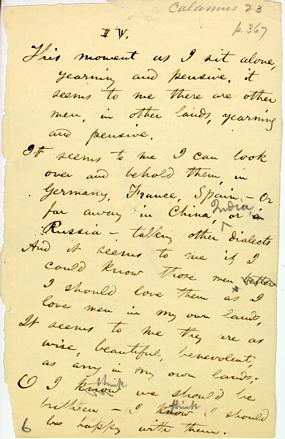 Calamus 23
p. 367
IV.
This moment as I sit alone,
yearning and pensive, it
seems to me there are other
men, in other lands, yearning
and pensive.
It seems to me I can look
over and behold them in
Germany, France, Spain – Or
far away in China, India, or in
Russia – talking other dialects
And it seems to me if I
could know those men
I should love them as I
love men in my own lands,
It seems to me they are as
wise, beautiful, benevolent
as any in my own lands;
O I know think we should be
brethren – I know think I should
be happy with them.
6